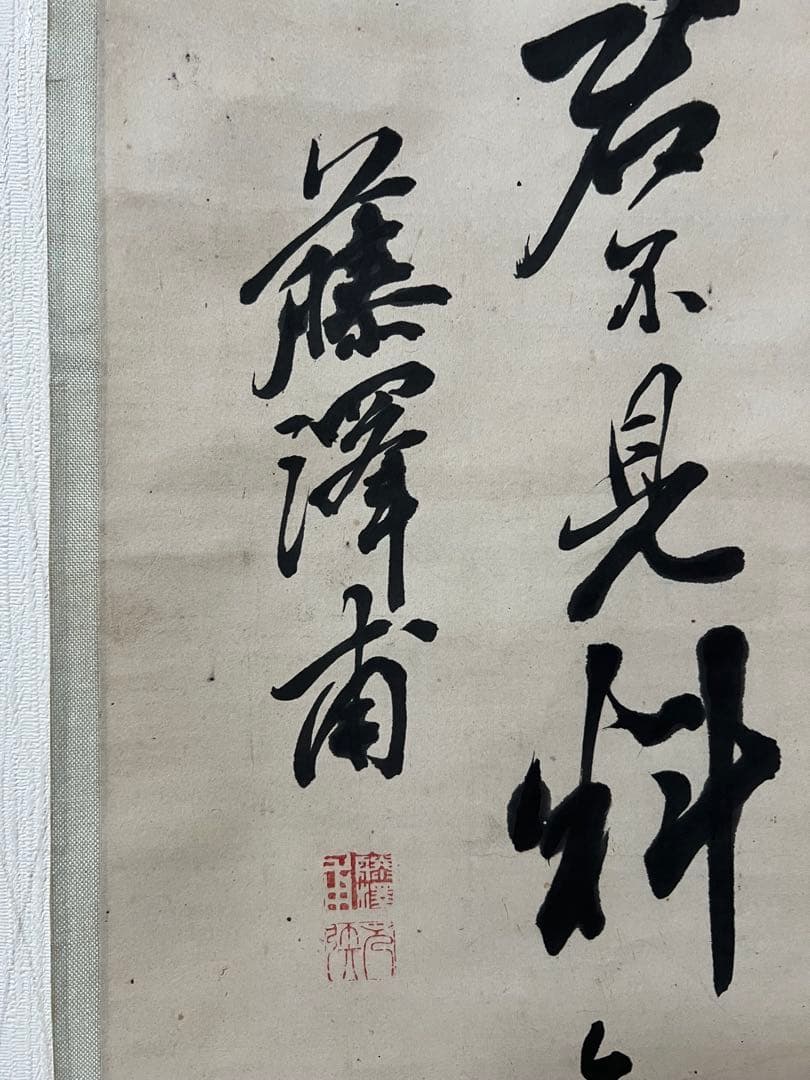 君不見料
藤澤甫